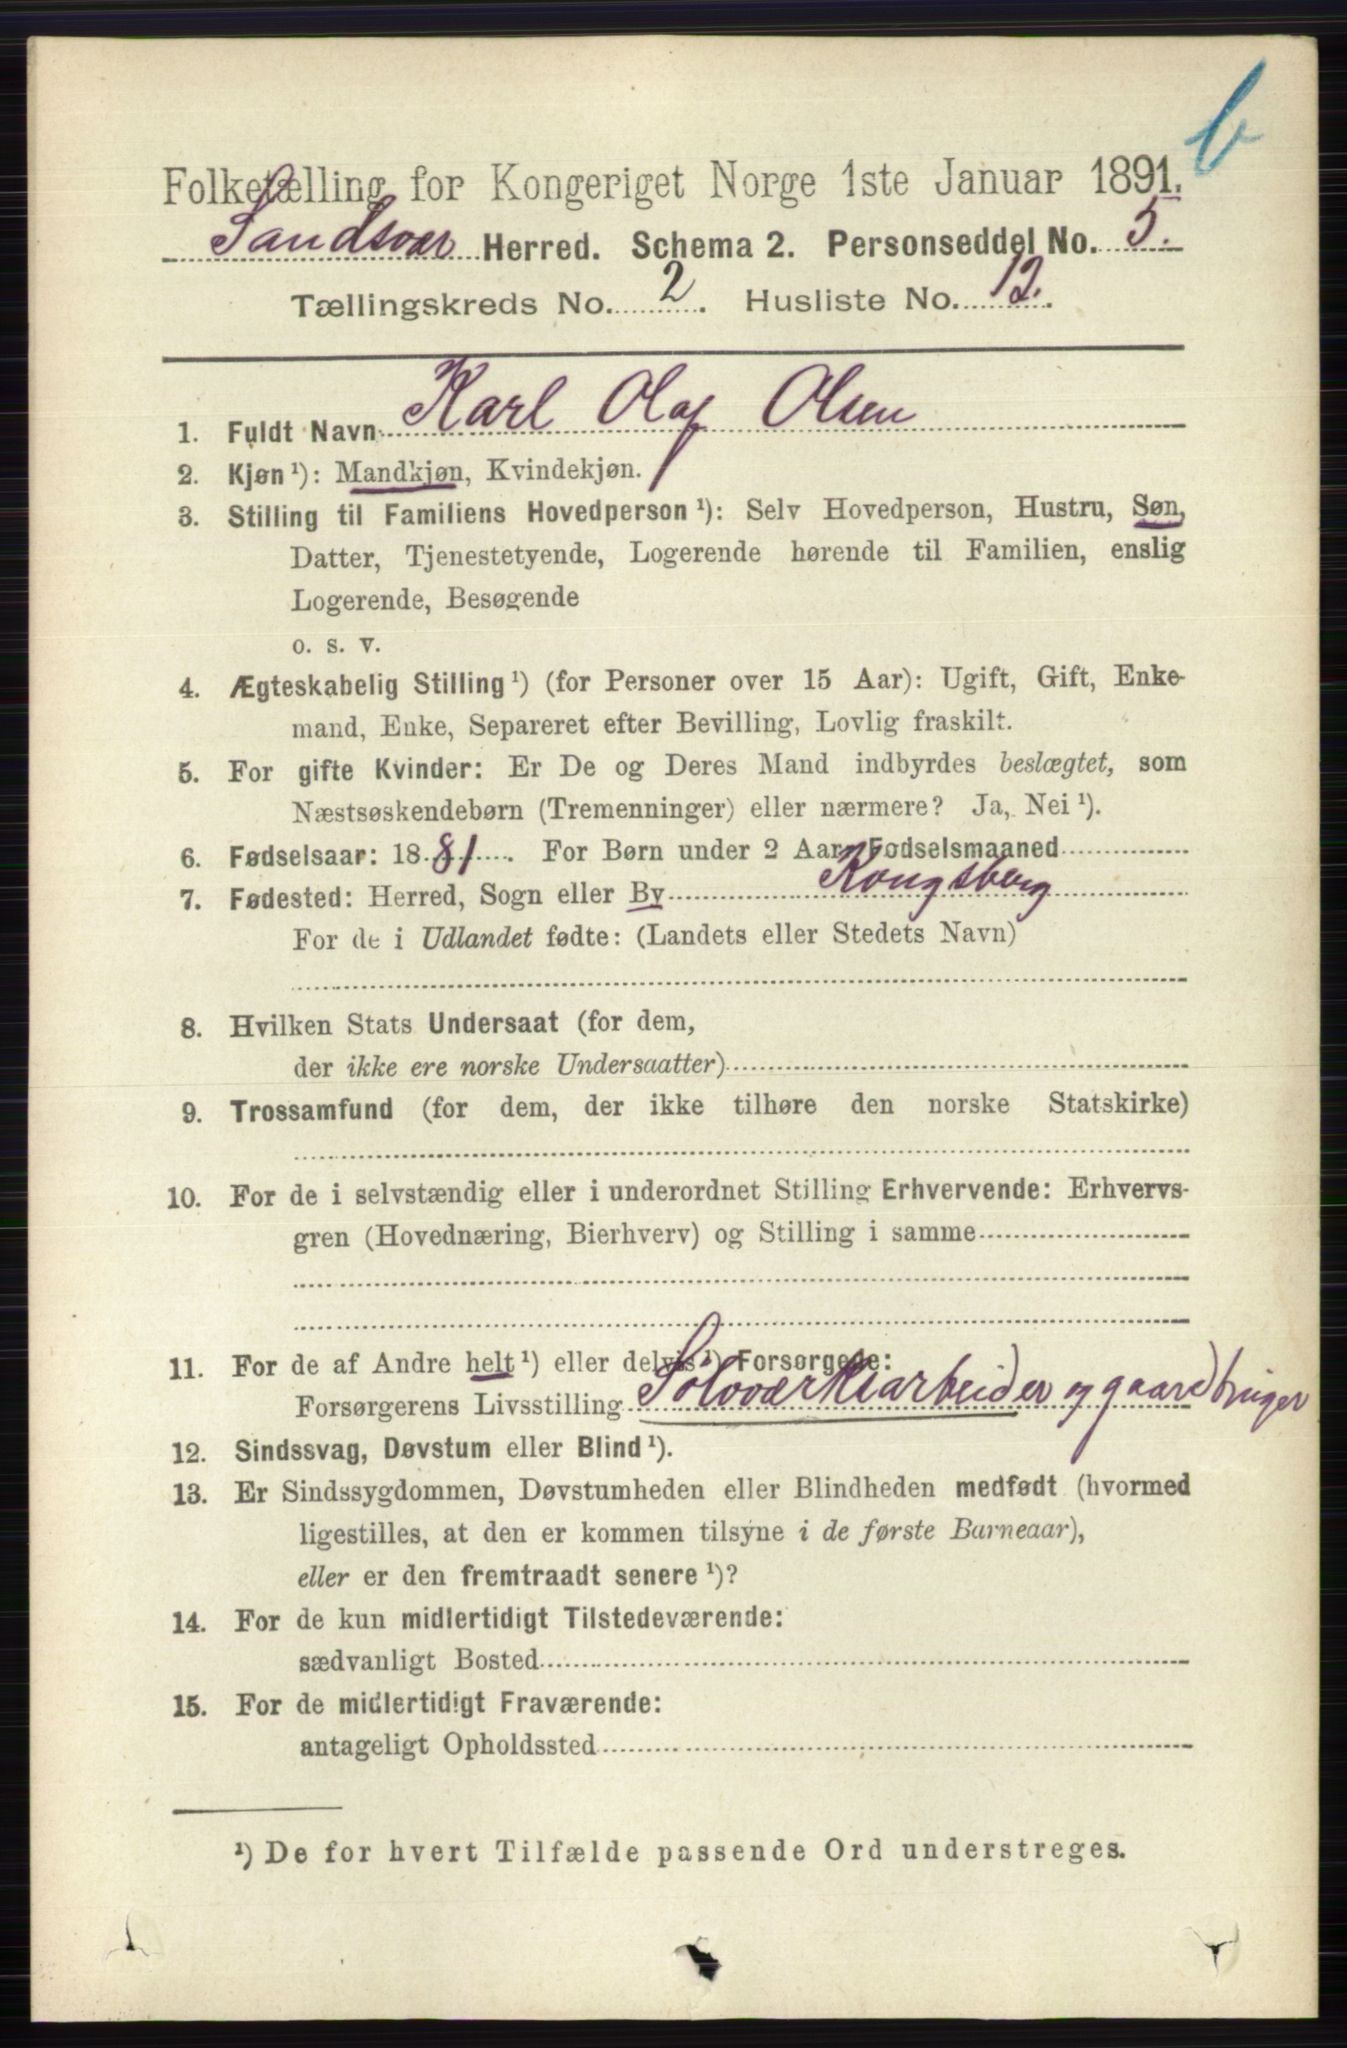 b
Folketælling for Kongeriget Norge 1ste Januar 1891.
Sandsvær Herred. Schema 2. Personseddel No. 5.
Tællingskreds No. 2. Husliste No. 12.
1. Fuldt Navn Karl Olaf Olsen
2. Kjøn ¹): Mandkjøn, Kvindekjøn.
3. Stilling til Familiens Hovedperson ¹): Selv Hovedperson, Hustru, Søn,
Datter, Tjenestetyende, Logerende hørende til Familien, enslig
Logerende, Besøgende
o. s. v.
4. Ægteskabelig Stilling ¹) (for Personer over 15 Aar): Ugift, Gift, Enke-
mand, Enke, Separeret efter Bevilling, Lovlig fraskilt.
5. For gifte Kvinder: Er De og Deres Mand indbyrdes beslægtet, som
Næstsøskendebørn (Tremenninger) eller nærmere? Ja, Nei ¹).
6. Fødselsaar: 1881. For Børn under 2 Aar: Fødselsmaaned
7. Fødested: Herred, Sogn eller By Kongsberg
For de i Udlandet fødte: (Landets eller Stedets Navn)
8. Hvilken Stats Undersaat (for dem,
der ikke ere norske Undersaatter)
9. Trossamfund (for dem, der ikke tilhøre den norske Statskirke)
10. For de i selvstændig eller i underordnet Stilling Erhvervende: Erhvervs-
gren (Hovednæring, Bierhverv) og Stilling i samme
11. For de af Andre helt ¹) eller delvis ¹) Forsørgede:
Forsørgerens Livsstilling Sølvværksarbeider og gaardbruger
12. Sindssvag, Døvstum eller Blind ¹).
13. Er Sindssygdommen, Døvstumheden eller Blindheden medfødt (hvormed
ligestilles, at den er kommen tilsyne i de første Barneaar),
eller er den fremtraadt senere ¹)?
14. For de kun midlertidigt Tilstedeværende:
sædvanligt Bosted
15. For de midlertidigt Fraværende:
antageligt Opholdssted
¹) De for hvert Tilfælde passende Ord understreges.